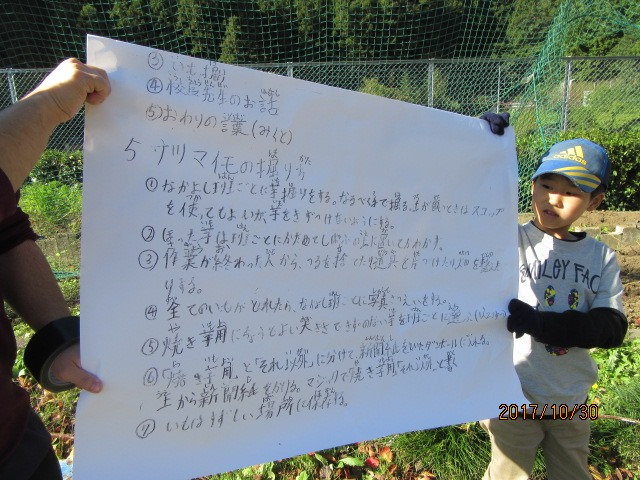 ③ いも掘り
④ 校長先生のお話
⑤ おわりの言葉(みくと)
5 サツマイモの掘り方
① なかよし班ごとに芋掘りをする。なるべく手で掘る。土が固いときはスコップ
を使ってもよいが、芋をきずつけないようにする。
② ほった芋は班ごとにかためて
③ 作業が終わった人から、つるを捨てたり道具を片づけたり
りする。
④ 全てのいもがとれたら、なかよし班ごとに写真さつえいをする。
⑤ 焼き芋用になりそうな
⑥ 「焼き芋用」と「それ以外」に分けて、新聞紙をひいたダンボールに入れる。
上から新聞紙をかける。マジックで「焼き芋用」「それ以外」と書く
⑦ いもはすずしい場所に保存する。
adidas
SMILEY FACE
2017/10/30